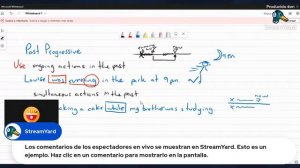 Producido con
Past Progressive
Use ongoing actions in the past
9pm
Louise was running in the park at 9 pm
simultaneous actions in the past
making a cake while my brother was studying.
StreamYard
Los comentarios de los espectadores en vivo se muestran en StreamYard. Esto es un
ejemplo. Haz clic en un comentario para mostrarlo en la pantalla.